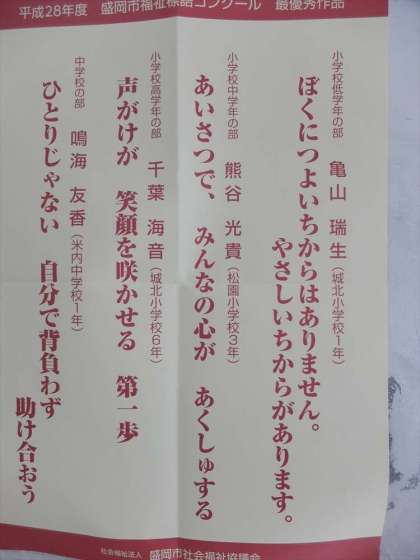 平成28年度 盛岡市福祉標語コンクール 最優秀作品
小学校低学年の部 亀山 瑞生(城北小学校1年)
ぼくにつよいちからはありません。
やさしいちからがあります。
小学校中学年の部 熊谷 光貴(松園小学校3年)
あいさつで、 みんなの心が あくしゅする
小学校高学年の部 千葉 海音(城北小学校6年)
声がけが 笑顔を咲かせる 第一歩
中学校の部 鳴海 友香(米内中学校1年)
ひとりじゃない 自分で背負わず
助け合おう
社会福祉法人 盛岡市社会福祉協議会